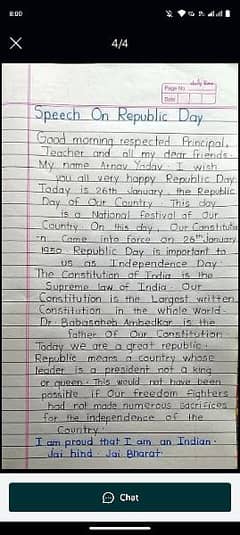 8:00
4/4
Daily Time
Page No
Date
Speech On Republic Day
Good morning respected Principal,
Teacher and all my dear friends.
My name Arnav Yadav. I wish
you all very happy Republic Day
Today is 26th January, the Republic
Day of Our Country. This day
is a National festival of Our
Country. On this day, Our Constitutio
-n Came into force on 26th January
1950. Republic Day is important to
us as Independence Day.
The Constitution of India is the
Supreme law of India. Our
Constitution is the Largest written
Constitution in the whole World.
Dr. Babasaheb Ambedkar is the
father Of Our Constitution.
Today we are a great republic.
Republic means a country whose
leader is a president not a king
or queen. This would not have been
possible if Our freedom fighters
had not made numerous sacrifices
for the independence of the
Country.
I am proud that I am an Indian.
Jai hind. Jai Bharat.
Chat